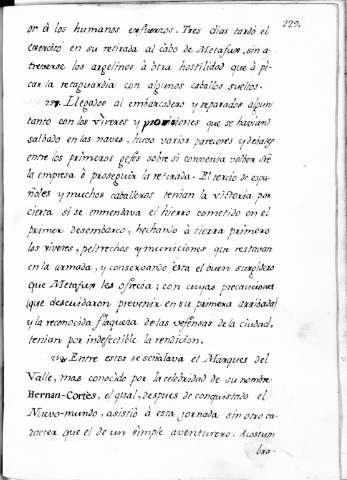 229.
or à los humanos esfuerzos. Tres dias tardó el
exercito en su retirada al cabo de Metafus, sin a-
treverse los argelinos à otra hostilidad que à pi-
car la retaguardia con algunos caballos sueltos.
Llegados al embarcadero y reparados algun
tanto con los viveres y provisiones que se havian
salbado en las naves, huvo varios pareceres y debates
entre los primeros gefes sobre si convenia volber à
la empresa ò proseguir la retirada. El tercio de espa-
ñoles y muchos caballeros tenian la victoria por
cierta si se enmendava el hierro cometido en el
primer desembarco, hechando à tierra primero
los viveres, peltrechos y municiones que restavan
en la armada, y conservando ésta el buen surgidero
que Metafus les ofrecia; con cuyas precauciones
(que descuidaron prevenir en su primera arribada)
y la reconocida flaqueza de las defensas de la ciudad,
tenian por indefectible la rendicion.
Entre estos se señalava el Marques del
Valle, mas conocido por la celebridad de su nombre
Hernan-Cortès, el qual, despues de conquistado el
Nuevo-mundo, asistió à esta jornada sin otro ca-
racter que el de un simple aventurero. Acostum
bra-